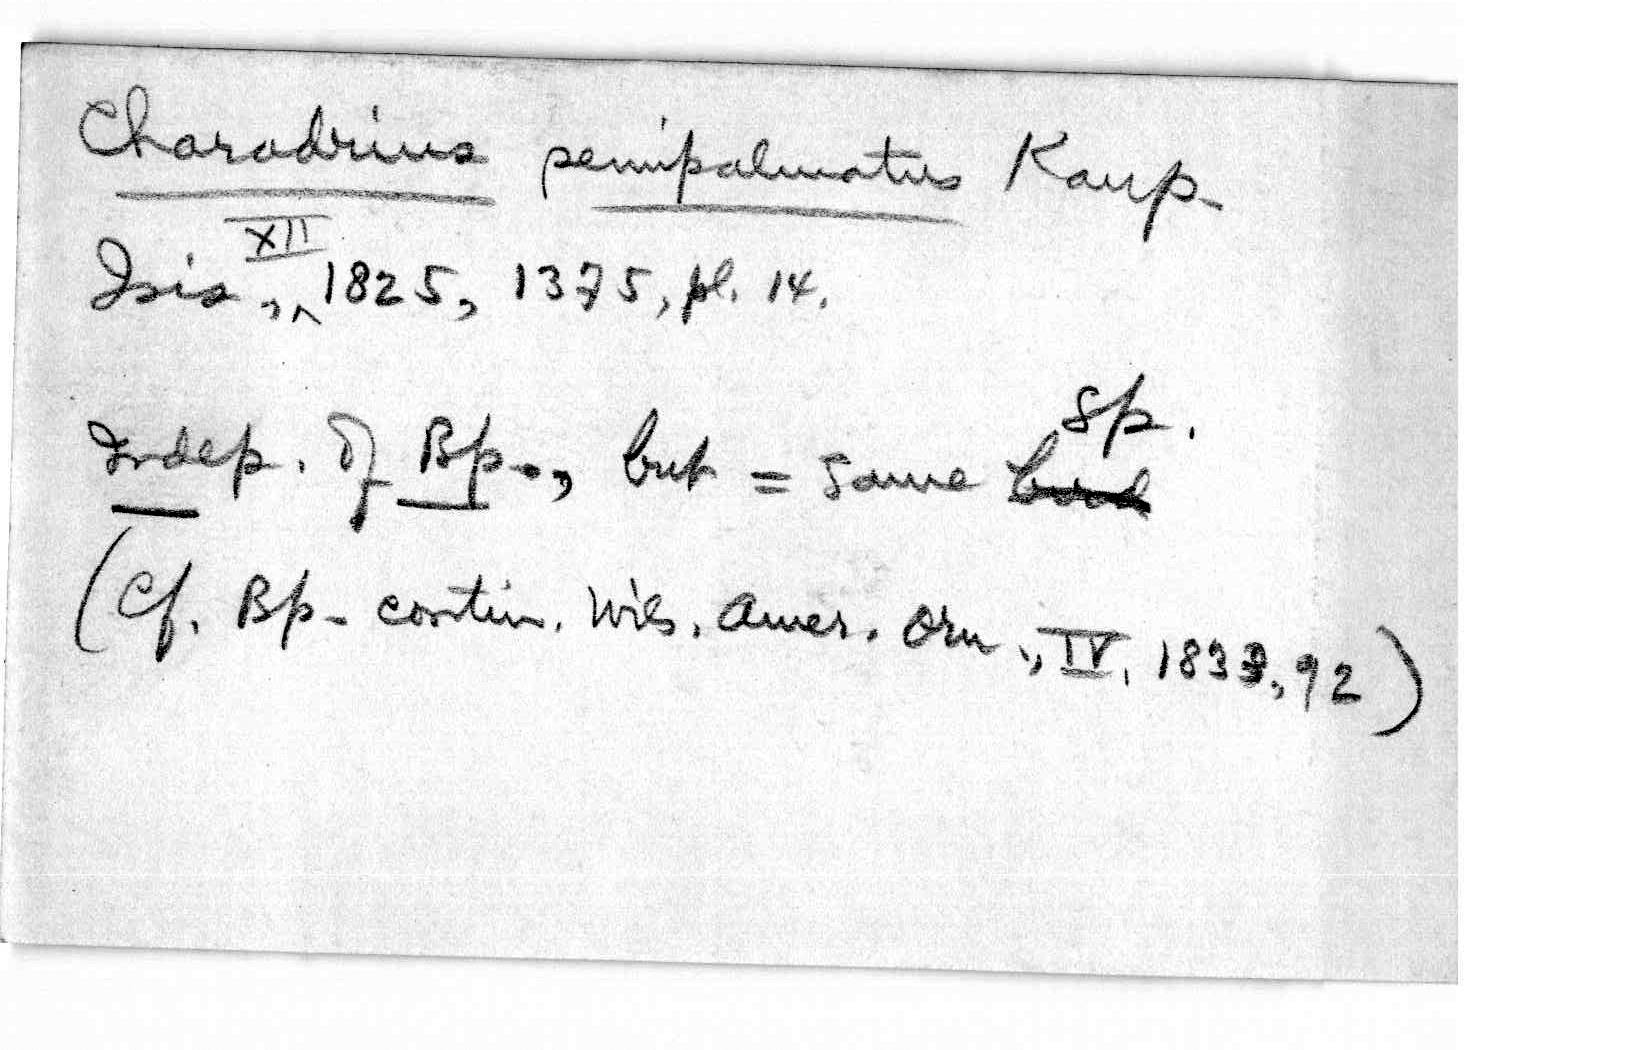 Charadrius semipalmatus Kaup.
Isis, XII 1825, 1375, pl. 14.
Indep. of Bp., but = same sp.
(Cf. Bp. contin. Wils. Amer. Orn., IV, 1833, 92)